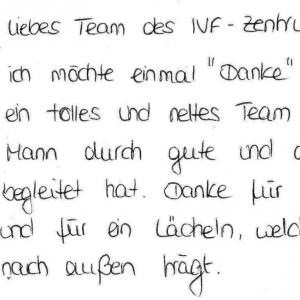 Liebes Team des IVF-Zentru
ich möchte einmal "Danke"
ein tolles und nettes Team
Mann durch gute und
begleitet hat. Danke für
und für ein Lächeln, welch
nach außen trägt.